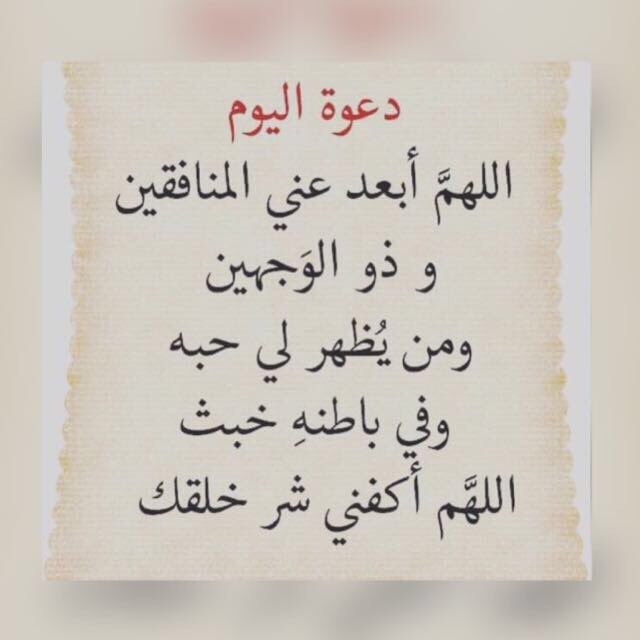 دعوة اليوم
اللهمَّ أبعد عني المنافقين
و ذو الوَجهين
ومن يُظهر لي حبه
وفي باطنهِ خبث
اللهَّم أكفني شر خلقك